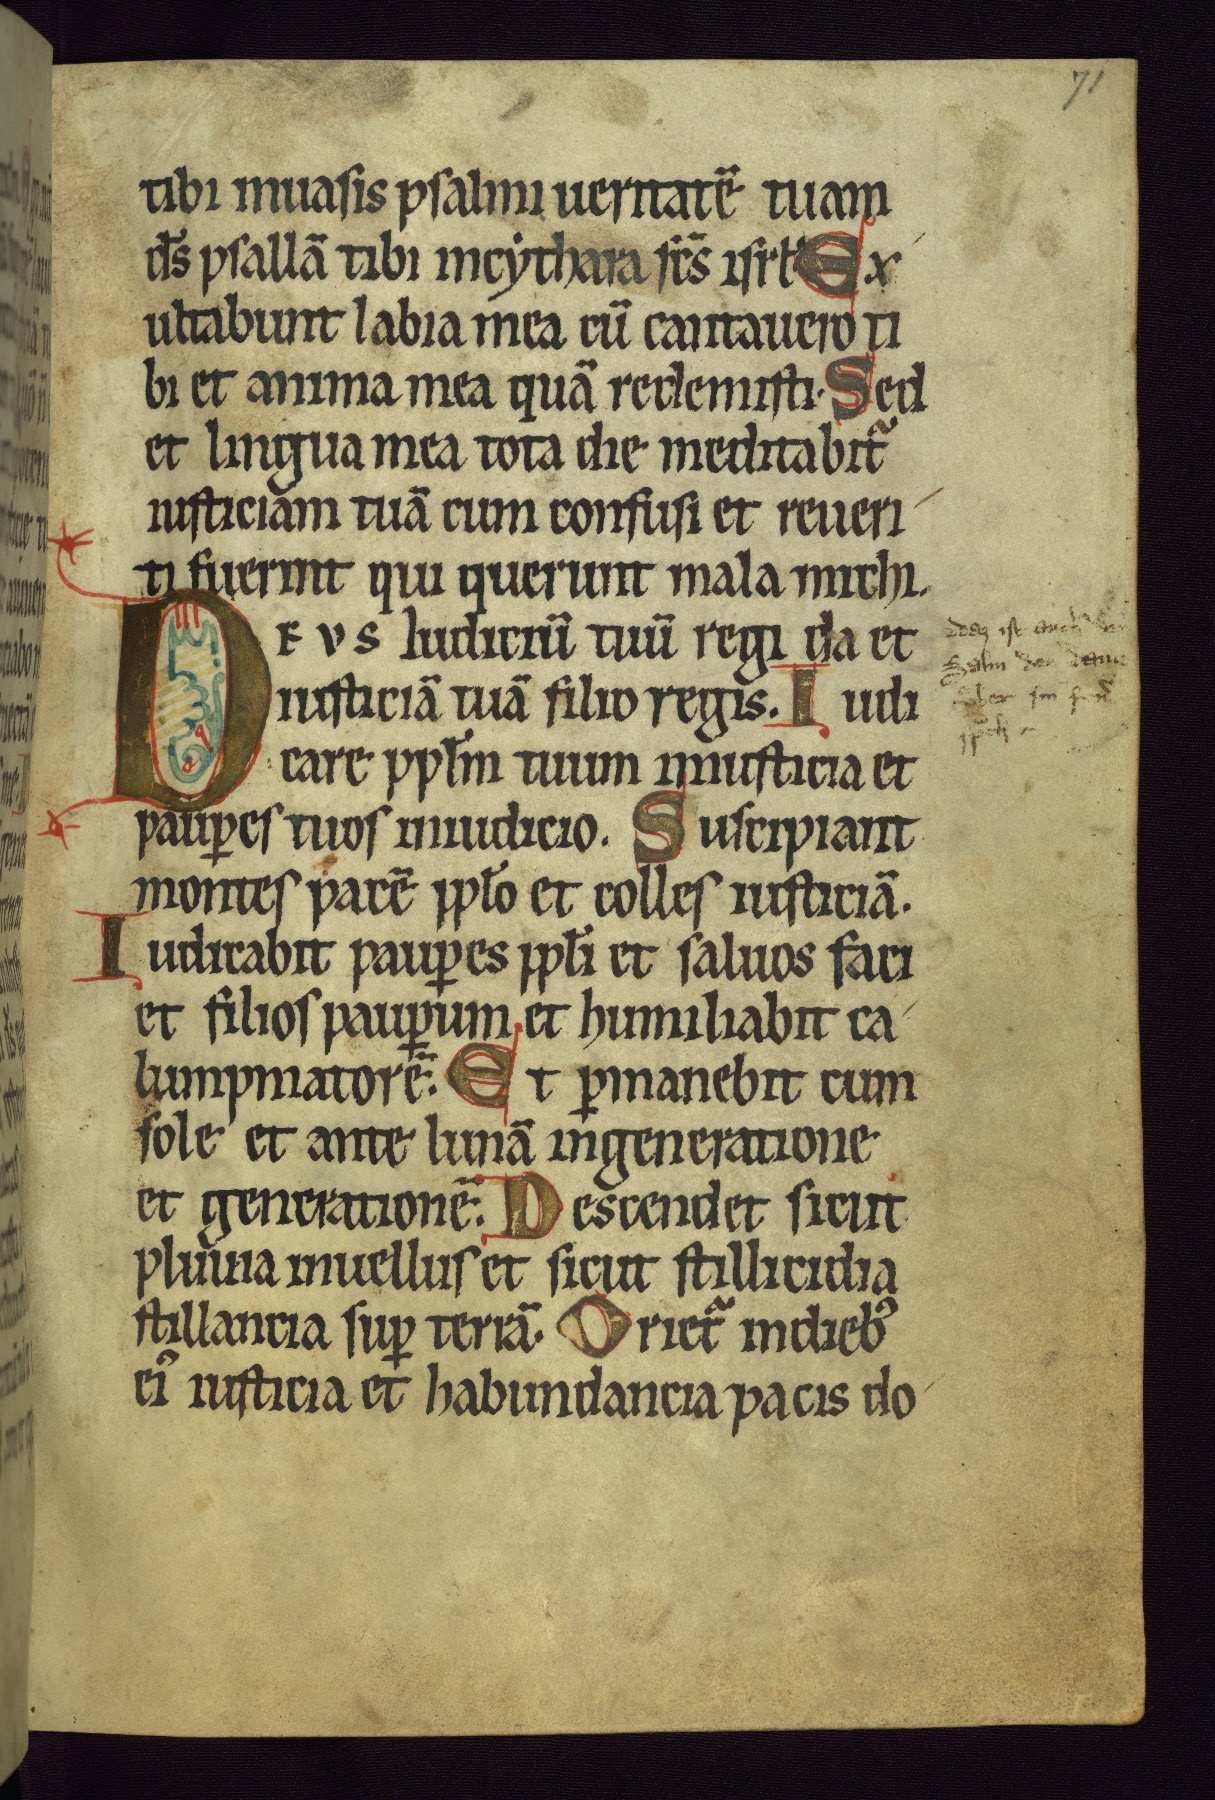 71
tibi inuasis psalmi ueritatē tuam
ds̄ psallā tibi incythara sc̄s isrl̄ Ex
ultabunt labia mea cū cantauero ti
bi et anima mea quā redemisti. Sed
et lingua mea tota die meditabit᷑
iusticiam tuā cum confusi et reueri
ti fuerint qui querunt mala michi.
DEVS Iudiciū tuū regi da et
iusticiā tuā filio regis. Iudi
care ppl̄m tuum iniusticia et
paup̲es tuos iniudicio. Suscipiant
montes pacē ppl̄o et colles iusticiā.
Iudicabit paup̲es ppl̄i et saluos faci
et filios paup̲um et humiliabit ca
lumpniatorē. Et p̲manebit cum
sole et ante lunā ingeneratione
et generationē. Descendet sicut
pluuia inuellus et sicut stillicidia
stillancia sup̲ terrā. Oriet᷑ indieb᷒
ei᷒ iusticia et habundancia pacis do